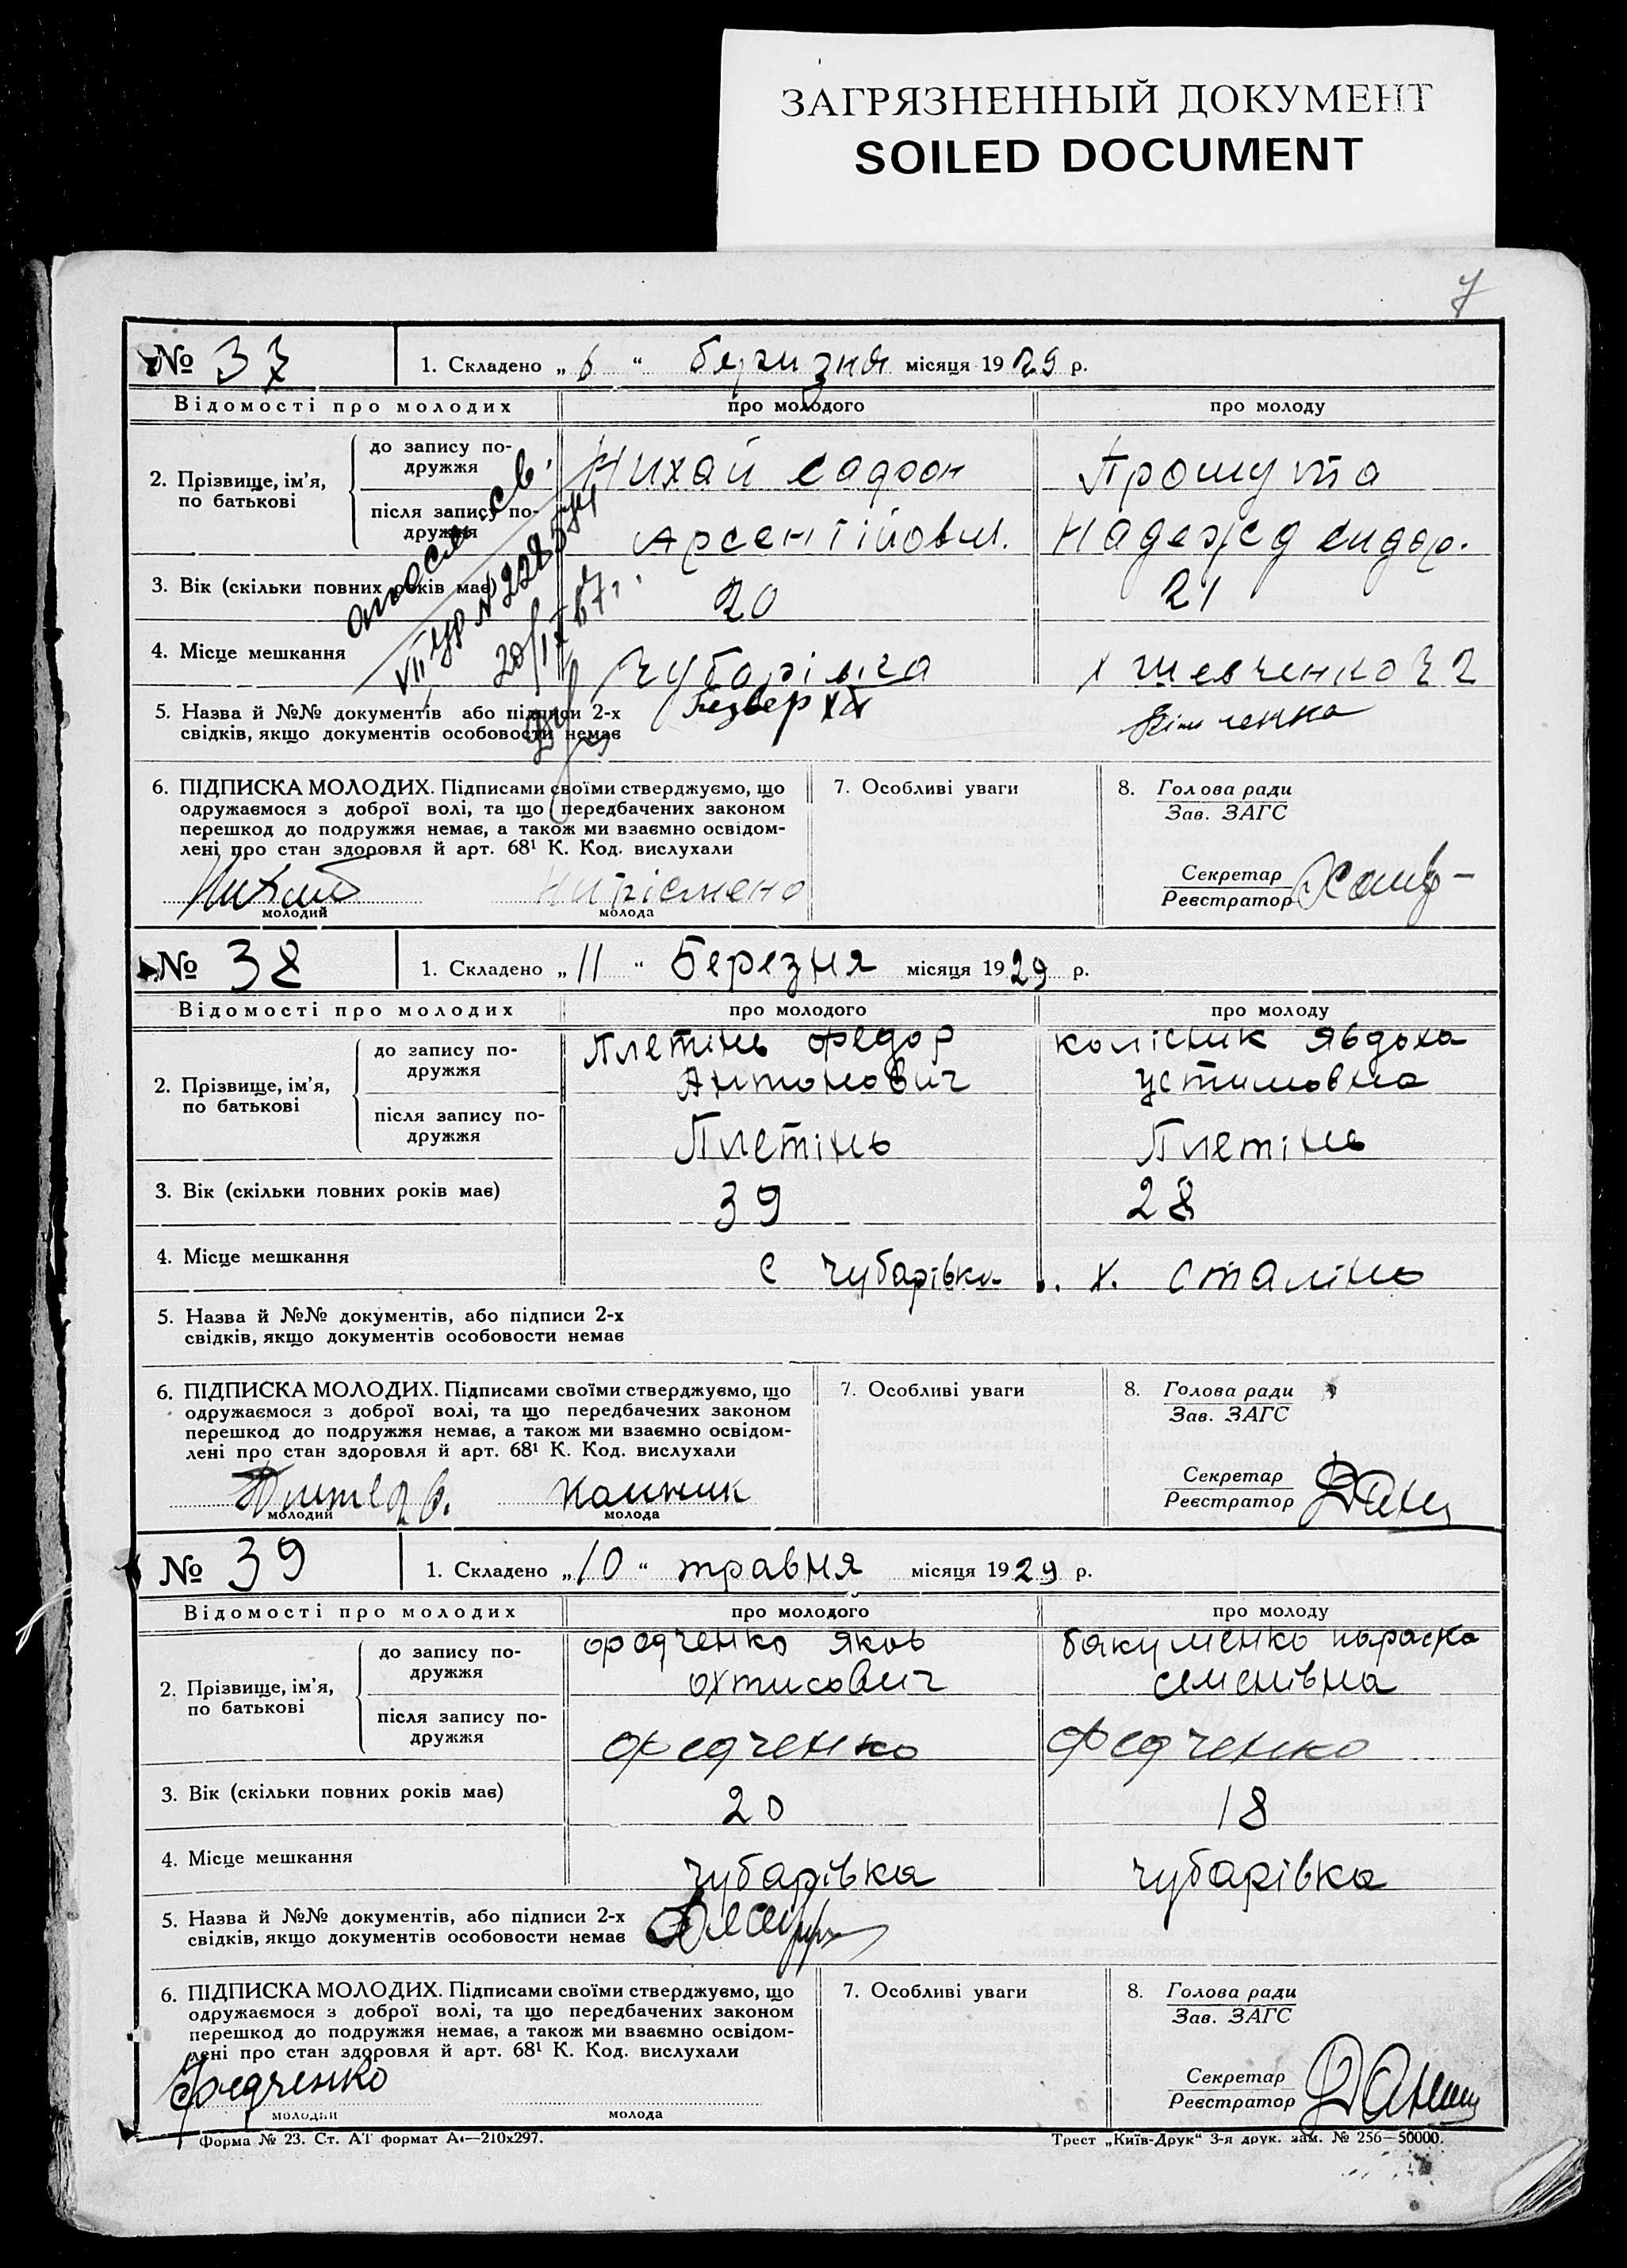 ЗАГРЯЗНЕННЫЙ ДОКУМЕНТ
SOILED DOCUMENT
7
№ 37
1. Складено „6“ місяця 1929 р.
Відомості про молодих
про молодого
про молоду
2. Прізвище, ім’я, по батькові
до запису подружжя
після запису подружжя
Нихай Сафрон
Арсентійович.
Прошута
Надежд Сидор.
3. Вік (скільки повних років має)
20
21
4. Місце мешкання
Чубарівка
х Шевченко 2
VII УР № 228574
5. Назва й №№ документів або підписи 2-х
свідків, якщо документів особовости немає
6. ПІДПИСКА МОЛОДИХ. Підписами своїми стверджуємо, що
одружаємося з доброї волі, та що передбачених законом
перешкод до подружжя немає, а також ми взаємно освідом-
лені про стан здоровля й арт. 68¹ К. Код. вислухали
молодий
молода
7. Особливі уваги
8. Голова ради
Зав. ЗАГС
Секретар
Реєстратор
№ 38
1. Складено „11“ Березня місяця 1929 р.
Відомості про молодих
про молодого
про молоду
2. Прізвище, ім’я,
по батькові
до запису по-
дружжя
Плетінь Федор
Антонович
Колісник Явдоха
Устимовна
після запису по-
дружжя
Плетінь
Плетінь
3. Вік (скільки повних років має)
39
28
4. Місце мешкання
с Чубарівка
х. Сталінь
5. Назва й №№ документів, або підписи 2-х
свідків, якщо документів особовости немає
6. ПІДПИСКА МОЛОДИХ. Підписами своїми стверджуємо, що
одружаємося з доброї волі, та що передбачених законом
перешкод до подружжя немає, а також ми взаємно освідом-
лені про стан здоровля й арт. 68¹ К. Код. вислухали
молодий
молода
7. Особливі уваги
8. Голова ради
Зав. ЗАГС
Секретар
Реєстратор
№ 39
1. Складено „10“ травня місяця 1929 р.
Відомості про молодих
про молодого
про молоду
2. Прізвище, ім’я,
по батькові
до запису по-
дружжя
Федченко Яков
Охтисович
Бакуменко Параска
Семенівна
після запису по-
дружжя
Федченко
Федченко
3. Вік (скільки повних років має)
20
18
4. Місце мешкання
Чубарівка
Чубарівка
5. Назва й №№ документів, або підписи 2-х
свідків, якщо документів особовости немає
6. ПІДПИСКА МОЛОДИХ. Підписами своїми стверджуємо, що
одружаємося з доброї волі, та що передбачених законом
перешкод до подружжя немає, а також ми взаємно освідом-
лені про стан здоровля й арт. 68¹ К. Код. вислухали
Федченко
молодий
молода
7. Особливі уваги
8. Голова ради
Зав. ЗАГС
Секретар
Реєстратор
Форма № 23. Ст. АТ формат А₄—210х297.
Трест „Київ-Друк“ 3-я друк. зам. № 256—50000.